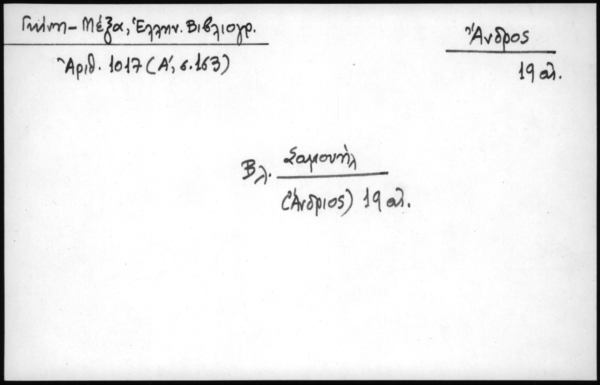 Γκίνη - Μέξα, Ἑλλην. Βιβλιογρ.
Ἀριθ. 1017 (Α΄, σ. 163)
Ἄνδρος
19 αἰ.
Βλ. Σαμουήλ
(Ἄνδριος) 19 αἰ.